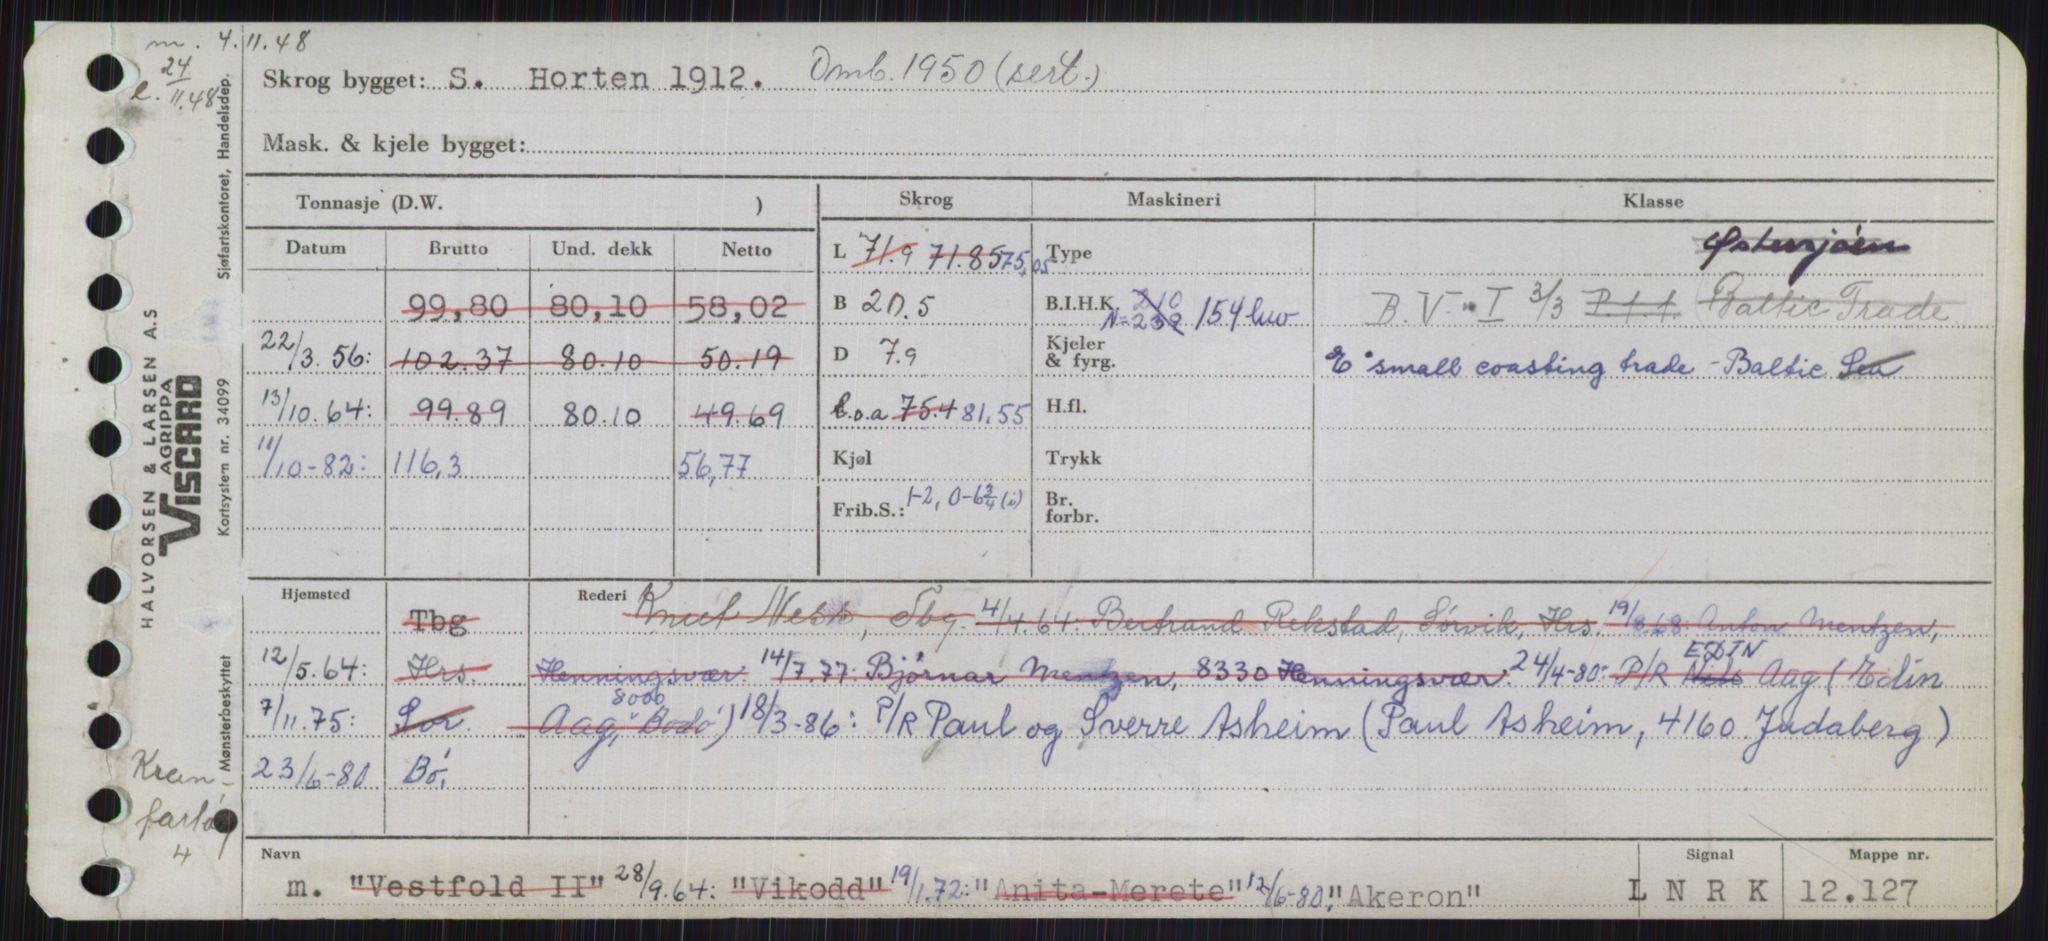 m. 4.11.48
24
e. 11.48
Skrog bygget: S. Horten 1912. Omb. 1950 (sert.)
Mask. & kjele bygget:
Tonnasje (D.W. )
Skrog
Maskineri
Klasse
Datum
Brutto
Und. dekk
Netto
L 71.9 71.85 75,05
Type
Østersjøen
99,80 80,10 58,02
B 20.5
B.I.H.K. 210 N=239 154 hw
B.V. I 3/3 P.t.t. (Baltic Trade
22/3.56: 102.37 80.10 50.19
D 7.9
Kjeler & fyrg.
E small coasting trade - Baltic Sea
13/10.64: 99.89 80.10 49.69
L.o.a 75.4 81,55
H.fl.
11/10-82: 116,3 56,77
Kjøl
Trykk
Frib.S.: 1-2, 0-6 3/4 (i)
Br. forbr.
Hjemsted
Tbg
Rederi
Knut Ness, Tbg. 4/4.64: Bertrand Rekstad, Sørvik, Hrs. 19/8.68: Anton Mentzen,
12/5.64: Hrs. Henningsvær. 14/7.77: Bjørnar Mentzen, 8330 Henningsvær. 24/4-80: P/R Nils EDIN Aag (Edin
7/11.75: Svr. Aag, 8000 Bodø) 18/3-86: P/R Paul og Sverre Asheim (Paul Asheim, 4160 Judaberg)
23/6-80 Bø.
Kran-
fartøy
4
Navn
Signal
Mappe nr.
m. "Vestfold II" 28/9.64: "Vikodd" 19/1.72: "Anita-Merete" 12/6-80: "Akeron"
L N R K
12.127
HALVORSEN & LARSEN A.S
AGRIPPA
VISCARD
Kortsystem nr. 34099
Sjøfartskontoret, Handelsdep.
Mønsterbeskyttet